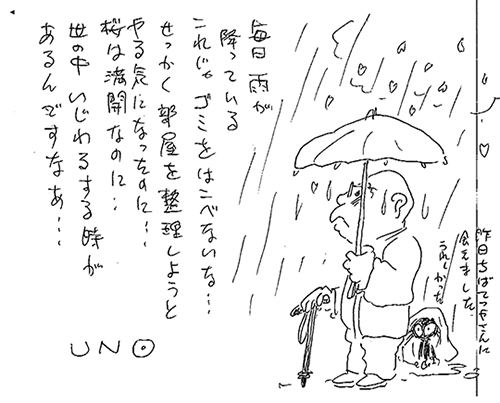 毎日 雨が
降っている
これじゃ ゴミをはこべないな…
せっかく 部屋を整理しようと
やる気になったのに…
桜は満開なのに…
世の中 いじわるする時が
あるんですなあ…
UNO
昨日ちばてつやさんに
会えました
うれしかった